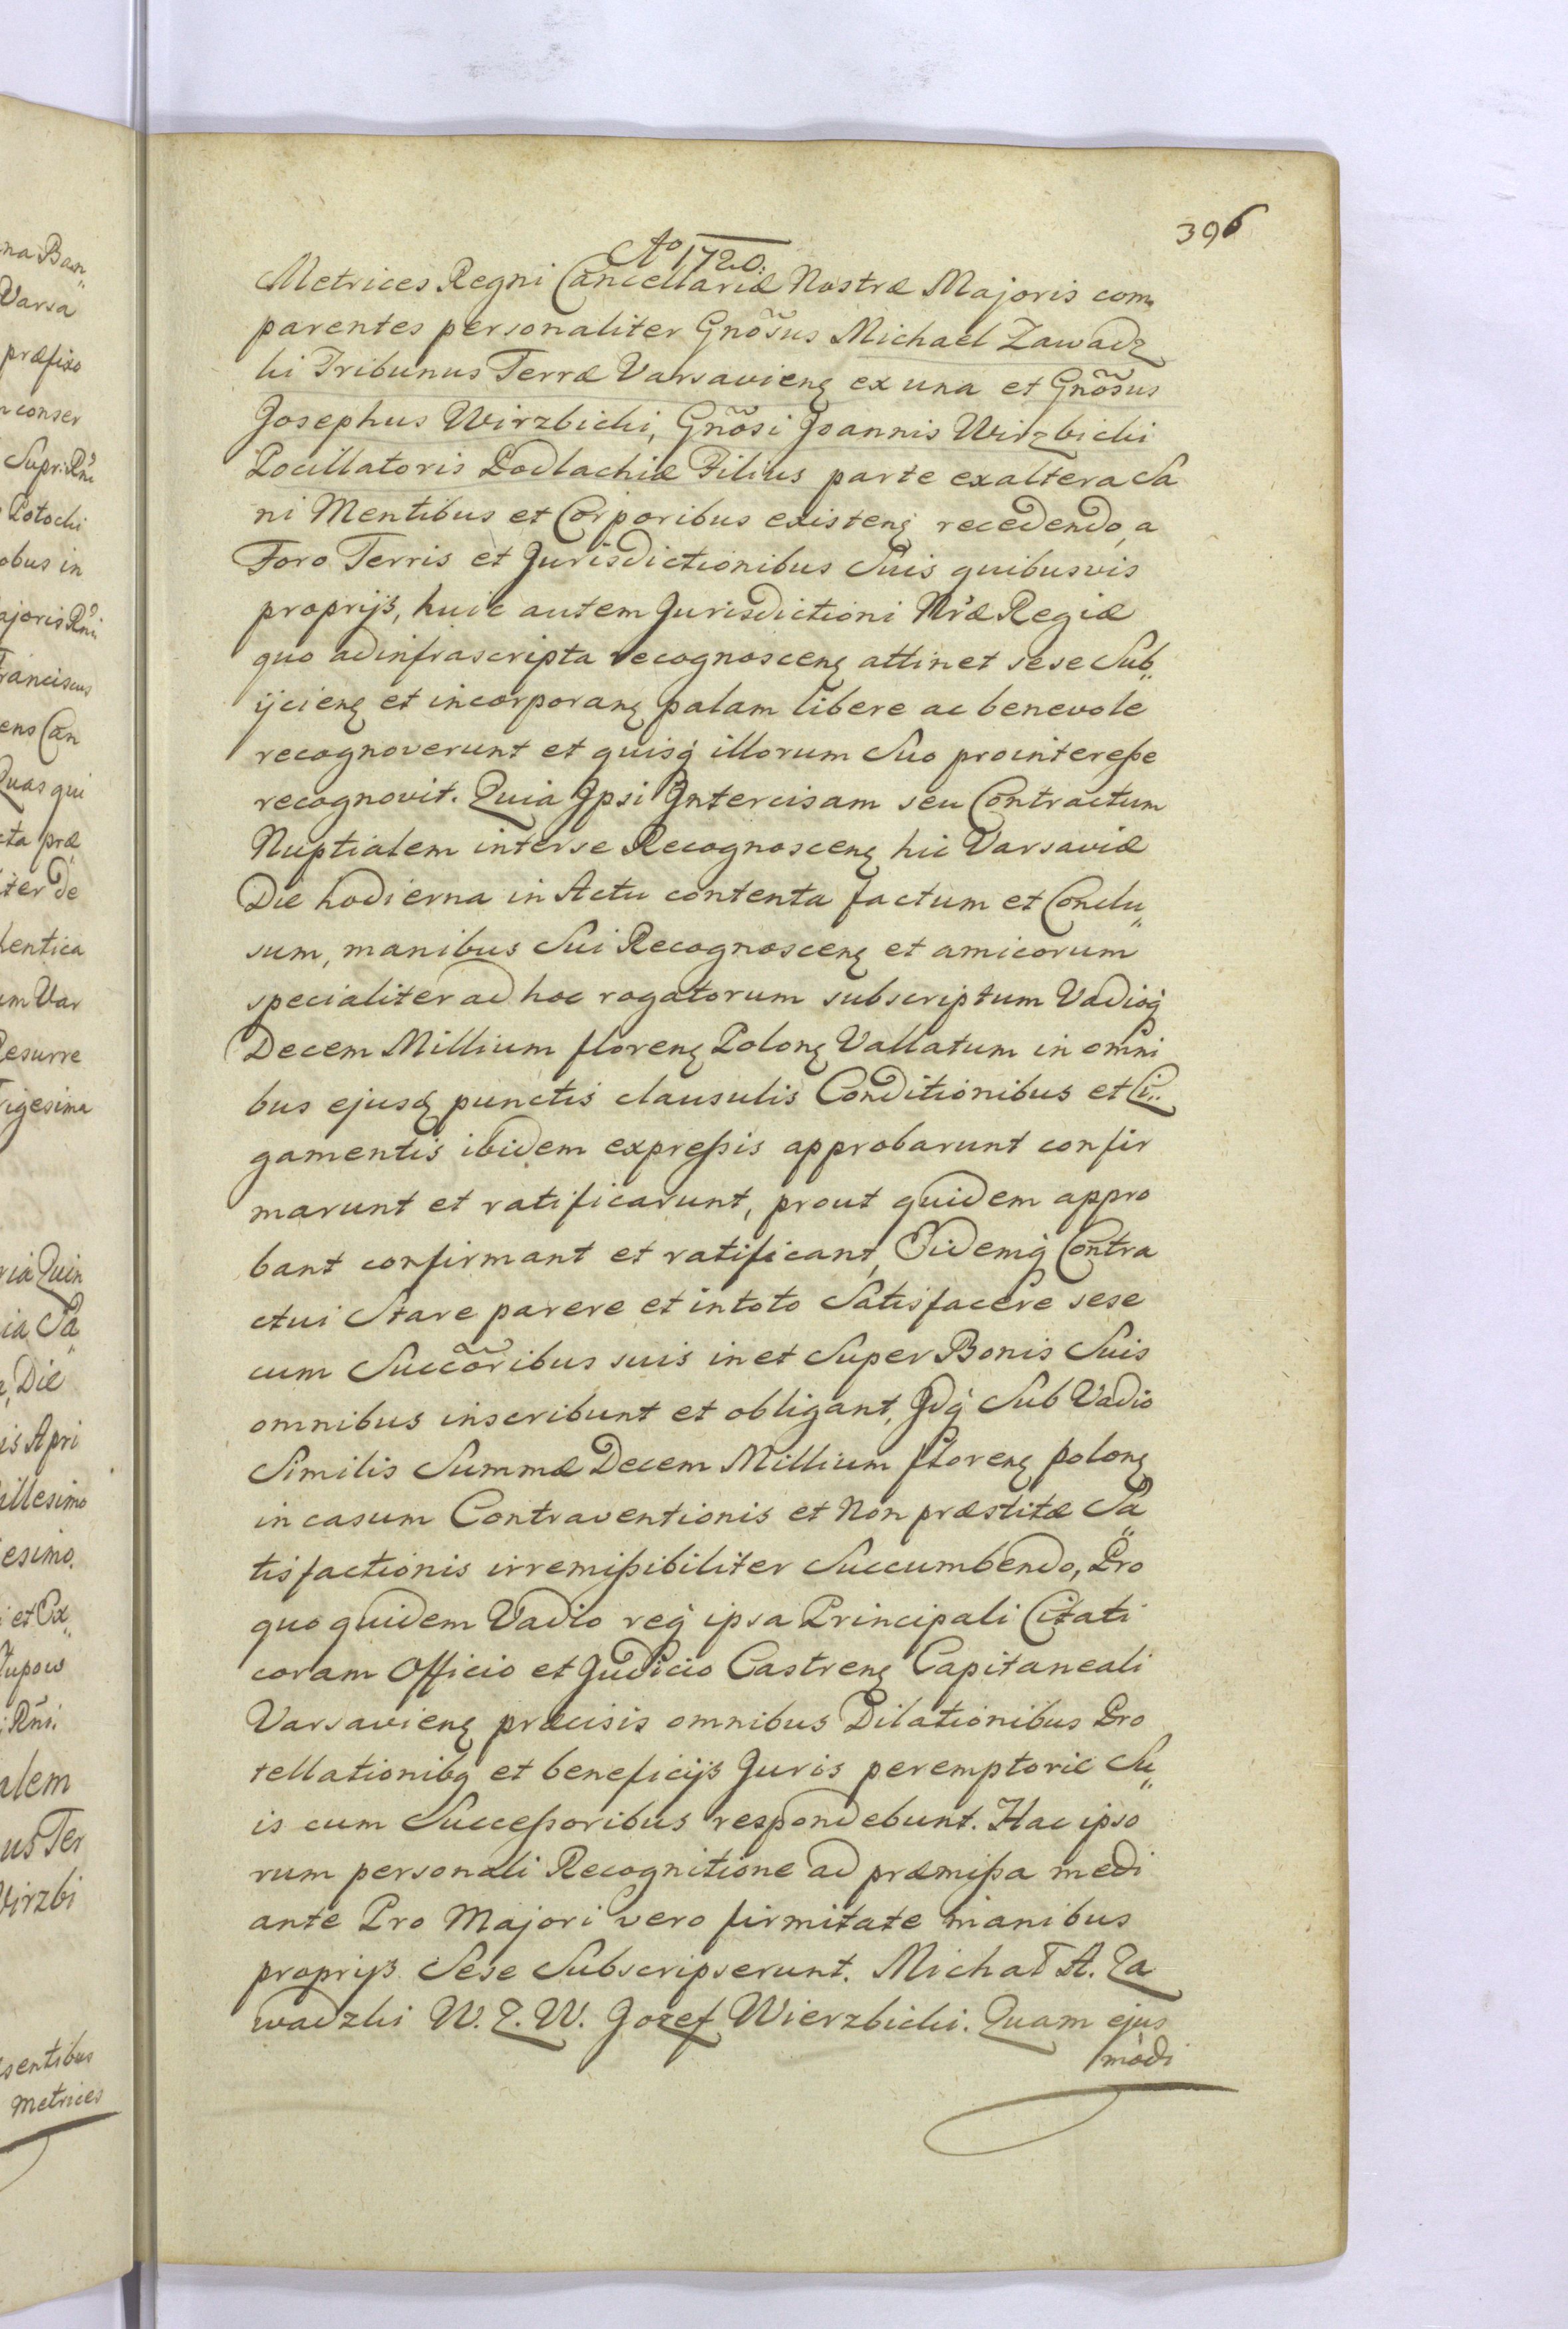 396
Ao 1720.
Metrices Regni Cancellariæ Nostræ Majoris com„
parentes personaliter Gnõsus Michael Zawadz
ki Tribunus Terræ Varsavienȩ ex una et Gnõsus
Josephus Wirzbicki, Gnõsi Joannis Wirzbicki
Pocillatoris Podlachiæ Filius parte exaltera Sa
ni Mentibus et Corporibus existenȩ recedendo, a
Foro Terris et Jurisdictionibus Suis quibusvis
proprijs, huic autem Jurisdictioni Nr̃æ Regiæ
quo adinfrascripta recognoscenȩ attinet sese Sub„
ijcienȩ et incorporanȩ palam libere ac benevole
recognoverunt et quisq́ illorum Suo prointereße
recognovit. Quia Ipsi Intercisam seu Contractum
Nuptialem interse Recognoscenȩ hic Varsaviæ
Die hodierna in Actu contenta factum et Conclu„
sum, manibus Sui Recognoscenȩ et amicorum
specialiter ad hoc rogatorum subscriptum Vadioq́
Decem Millium florenȩ Polonȩ Vallatum in omni
bus ejusȩ punctis clausulis Conditionibus et Li„
gamentis ibidem expreßis approbarunt confir
marunt et ratificarunt, prout quidem appro
bant confirmant et ratificant, Eidemq́ Contra
ctui Stare parere et intoto Satisfacere sese
cum Succõribus suis inet Super Bonis Suis
omnibus inscribunt et obligant, Idq́ Sub Vadio
Similis Summæ Decem Millium florenȩ polonȩ
in casum Contraventionis et Non præstitæ Sa„
tisfactionis irremißibiliter Succumbendo, Pro
quo quidem Vadio req́ ipsa Principali Citati
coram Officio et Judicio Castrenȩ Capitaneali
Varsavienȩ præcisis omnibus Dilationibus Pro
tellationibq et beneficijs Juris peremptorie Su„
is cum Succeßoribus respondebunt. Hac ipso
rum personali Recognitione ad præmißa medi
ante Pro Majori vero firmitate manibus
proprijs Sese Subscripserunt. Michał A. Za
wadzki W. Z. W. Jozef Wierzbicki. Quam ejus
modi